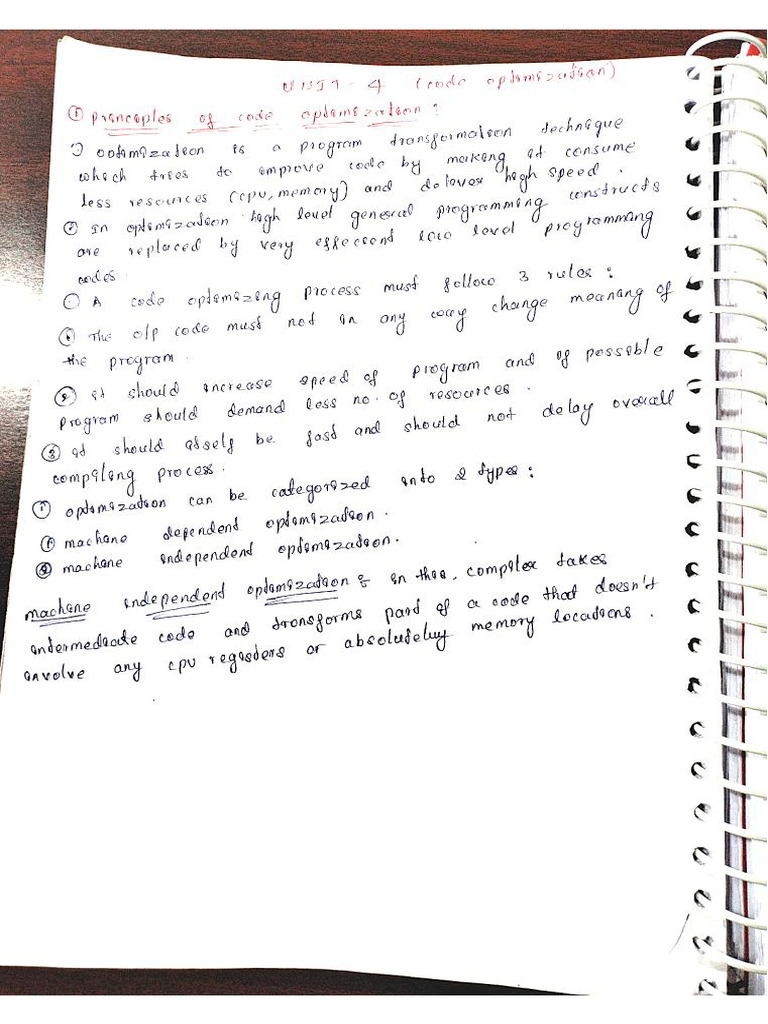 UNIT-4 (code optimization)
① Principles of code optimization:
① optimization is a program transformation technique
which tries to improve code by making it consume
less resources (cpu, memory) and deliver high speed.
② In optimization high level general programming constructs
are replaced by very efficient low level programming
codes.
① A code optimizing process must follow 3 rules:
① The o/p code must not in any way change meaning of
the program.
② it should increase speed of program and if possible
program should demand less no. of resources.
③ it should itself be fast and should not delay overall
compiling process.
① optimization can be categorized into 2 types:
① machine dependent optimization.
② machine independent optimization.
machine independent optimization: in this, compiler takes
intermediate code and transforms part of a code that doesn't
involve any cpu registers or absolutely memory locations.